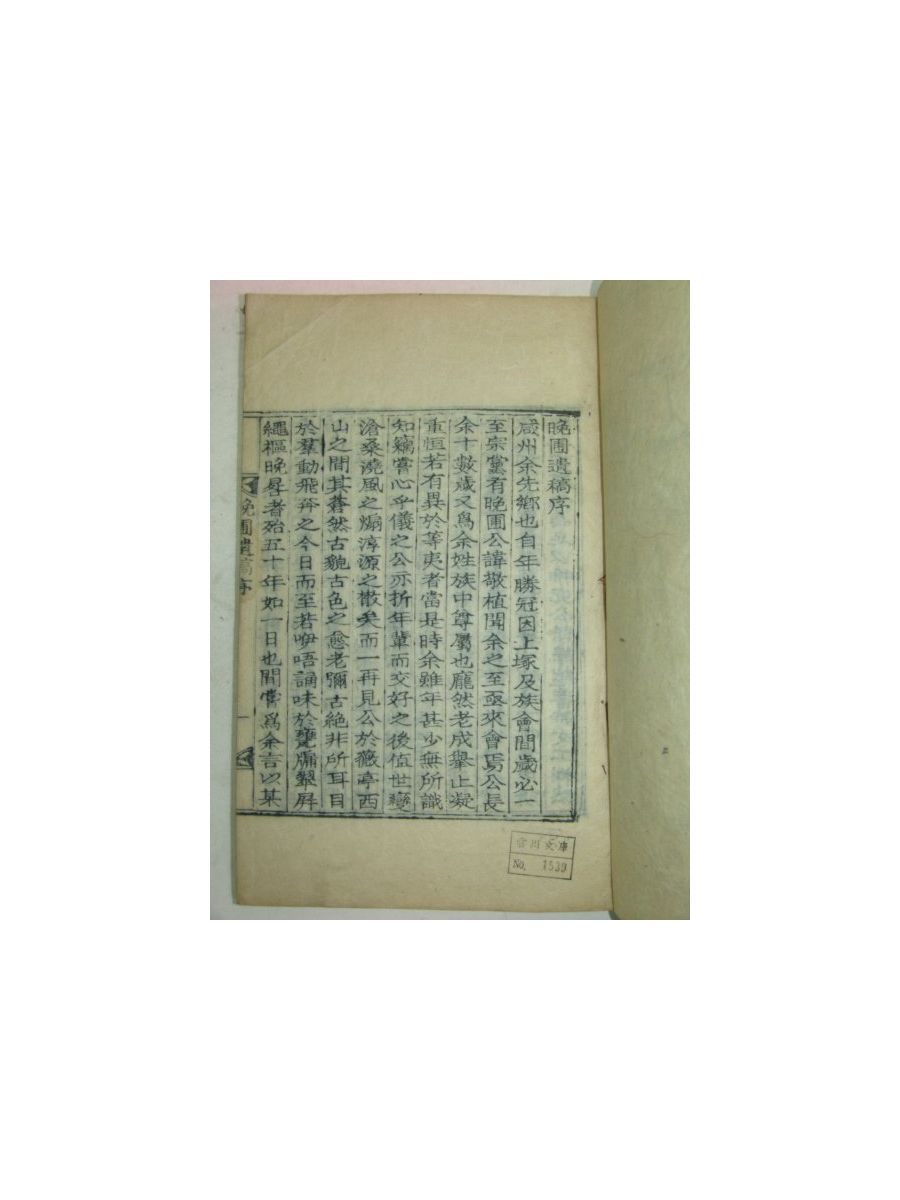 晩圃遺稿序
咸州余先鄕也自年勝冠因上塚及族會間歲必一
至宗黨有晩圃公諱敬植聞余之至亟來會焉公長
余十數歲又爲余姓族中尊屬也龐然老成擧止凝
重恒若有異於等夷者當是時余雖年甚少無所識
知竊嘗心乎儀之公亦折年輩而交好之後値世變
滄桑澆風之煽淳源之散矣而一再見公於薇亭西
山之間其蒼然古貌古色之愈老彌古絶非所耳目
於羣動飛奔之今日而至若咿唔誦味於甕牖蓽屛
繩樞晩晷者殆五十年如一日也間嘗爲余言以某
晩圃遺稿序
一
文庫
No. 1539